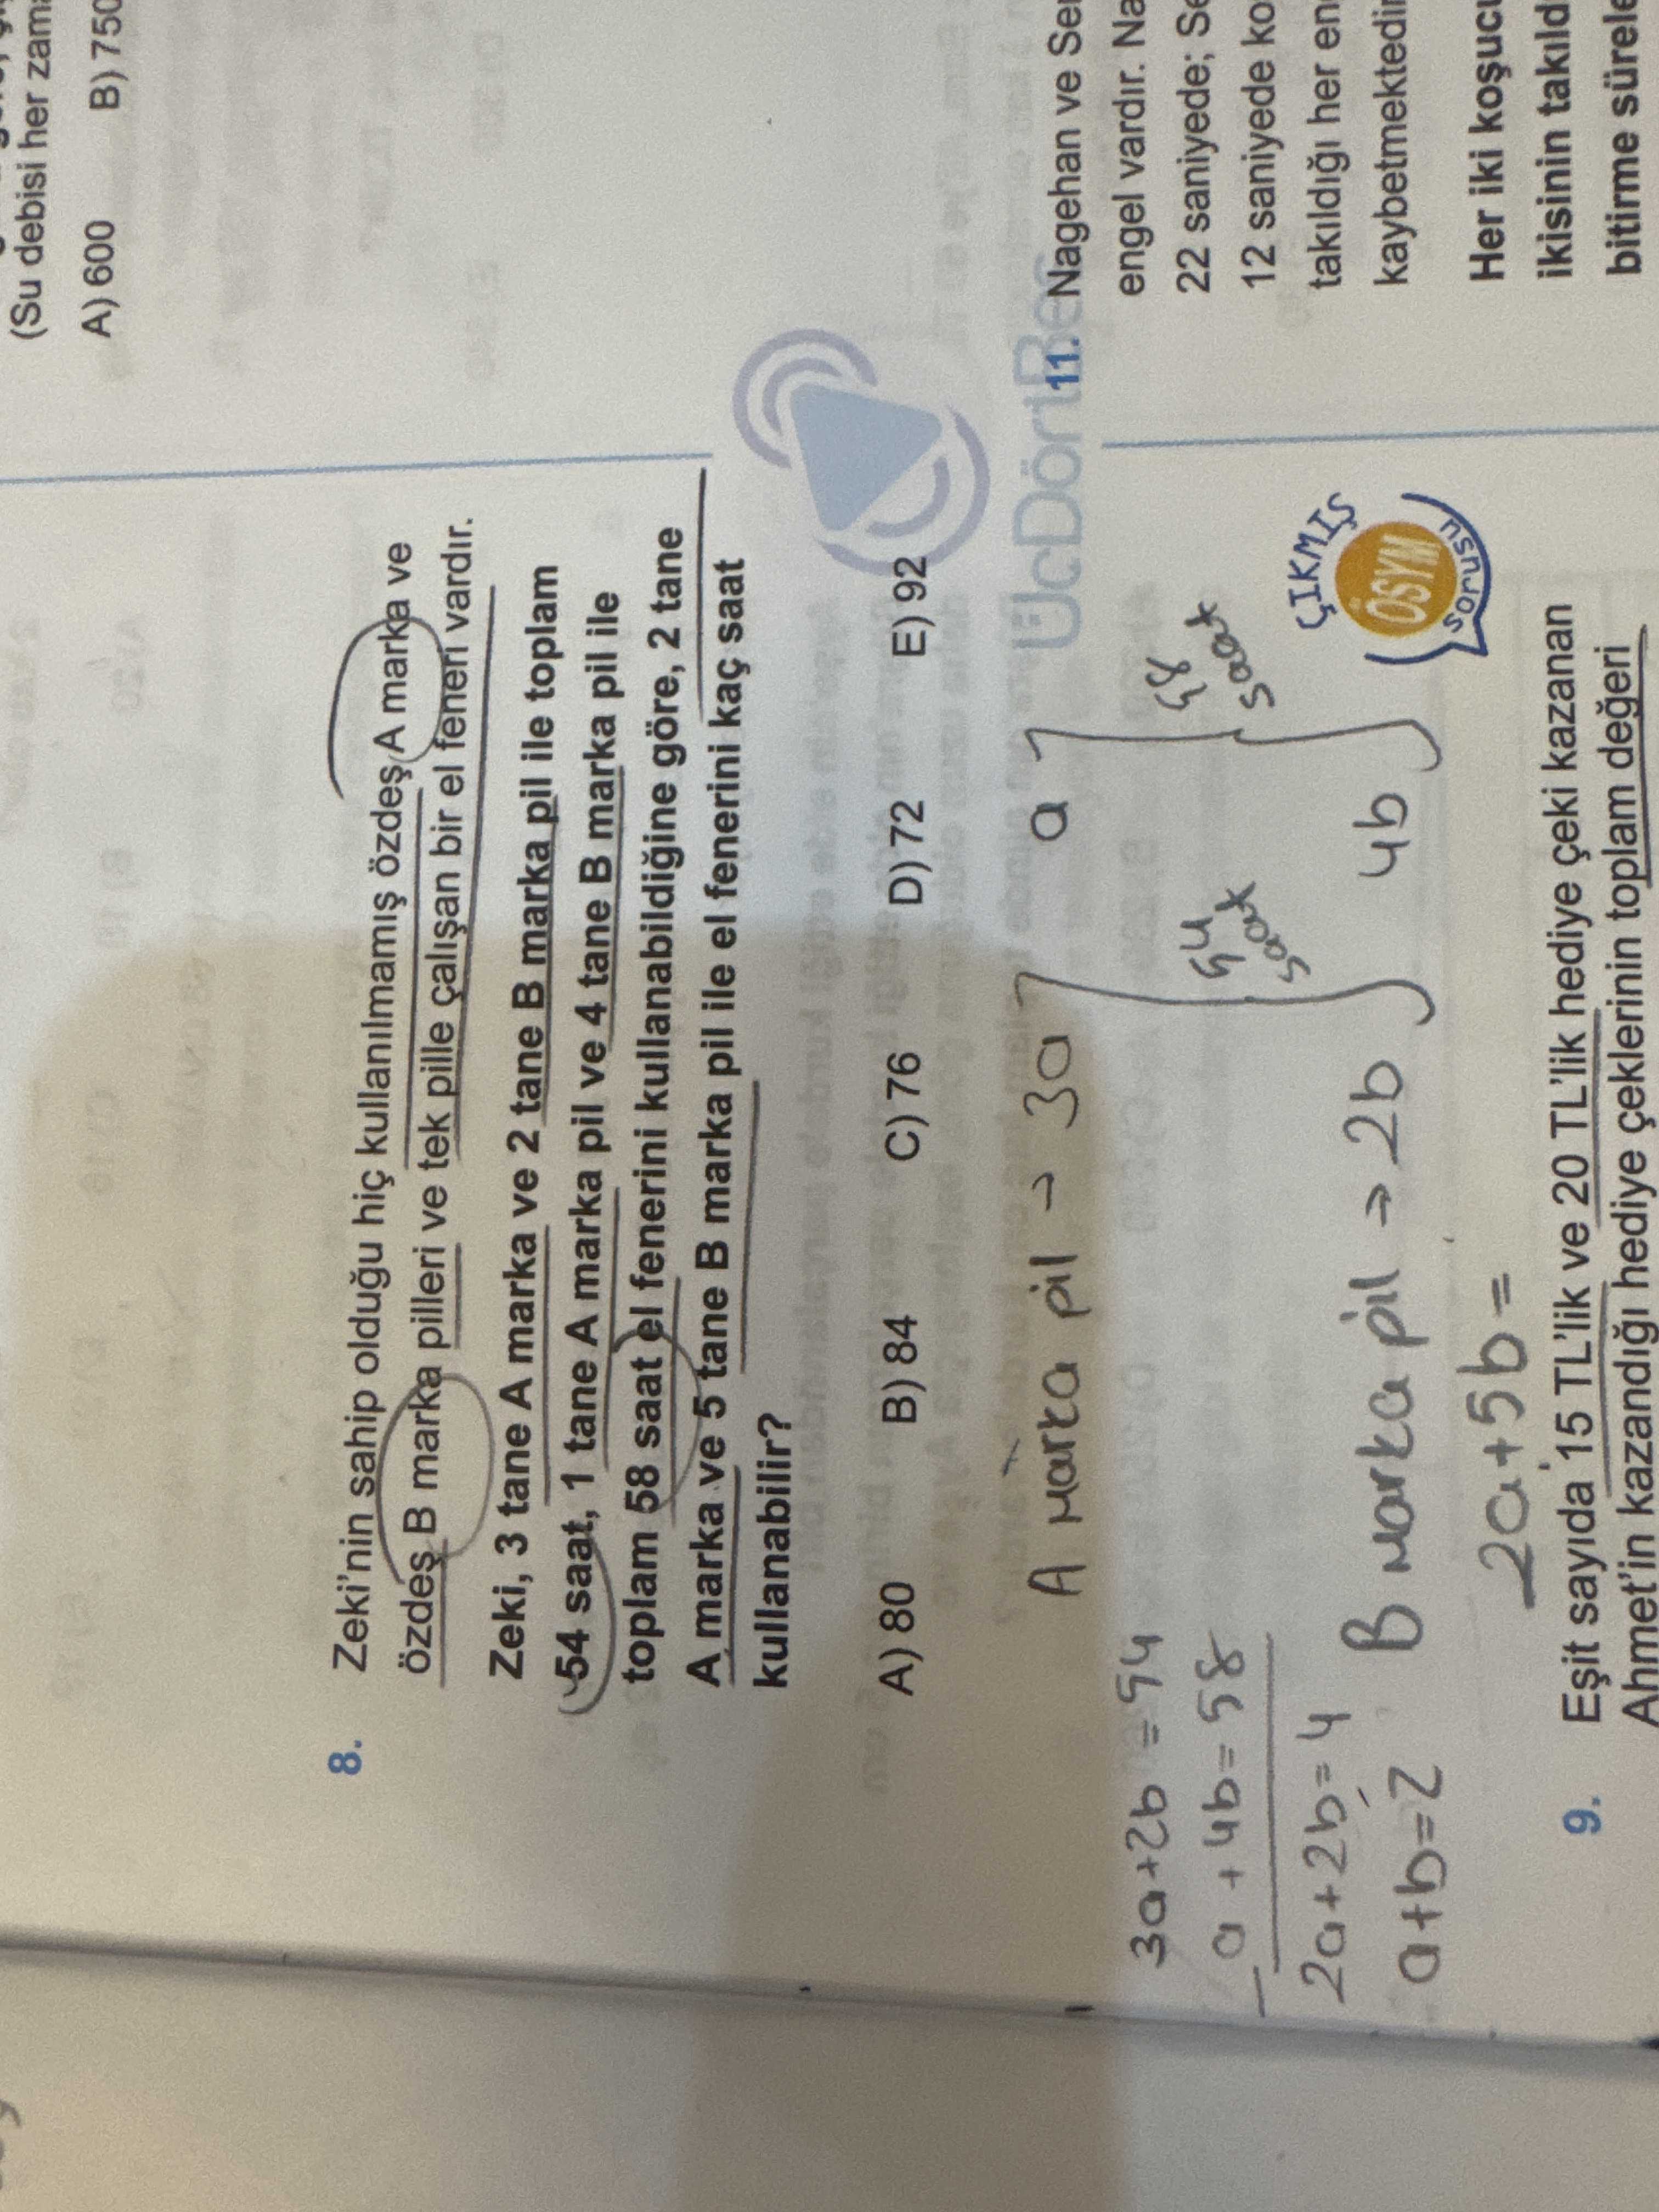 (Su debisi her zam
A) 600 B) 750
8. Zeki'nin sahip olduğu hiç kullanılmamış özdeş A marka ve
özdeş B marka pilleri ve tek pille çalışan bir el feneri vardır.
Zeki, 3 tane A marka ve 2 tane B marka pil ile toplam
54 saat, 1 tane A marka pil ve 4 tane B marka pil ile
toplam 58 saat el fenerini kullanabildiğine göre, 2 tane
A marka ve 5 tane B marka pil ile el fenerini kaç saat
kullanabilir?
A) 80 B) 84 C) 76 D) 72 E) 92
A marka pil → 3a a
54 saat 58 saat
B marka pil → 2b 4b
2a+5b=
3a+2b=54
a+4b=58
2a+2b=4
a+b=2
ÇIKMIŞ
ÖSYM
sorusu
9. Eşit sayıda 15 TL'lik ve 20 TL'lik hediye çeki kazanan
Ahmet'in kazandığı hediye çeklerinin toplam değeri
ÜçDörtBeş
11. Nagehan ve Se
engel vardır. Na
22 saniyede; Se
12 saniyede ko
takıldığı her en
kaybetmektedir
Her iki koşucu
ikisinin takıld
bitirme sürele